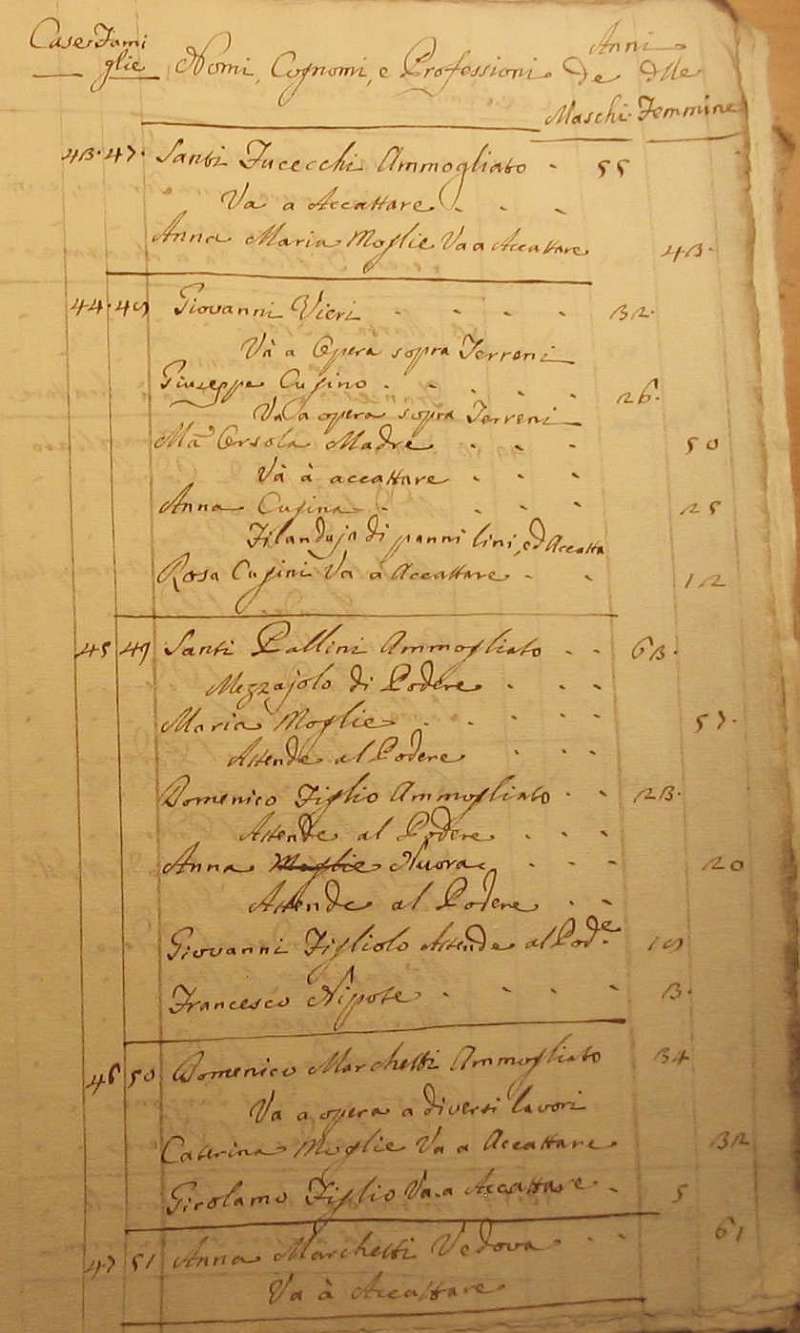 Case Fami Anni
glie Nomi, Cognomi, e Professioni De Delle
Maschi Femmine
43. 47. Santi Fucecchi Ammogliato - 55
Va a Accattare - - -
Anna Maria Moglie Va a Accattare 43.
44. 48 Giovanni Vieri - - - - 32.
Và a Opera sopra Terreni
Giuseppe Cugino - - - - - 26.
Va a opera sopra Terreni
Ma Orsola Madre - - - 50
Và à accattare - - -
Anna Cugina - - - - 25
Filandaja di panni lini, ed Accatta
Rosa Cugini Va a Accattare - - 12
45 49 Santi Pallini Ammogliato - - 63.
Mezzajolo di Podere - - -
Maria Moglie - - - - - 57.
Attende al Podere - - -
Domenico Figlio Ammogliato - - 23.
Attende al Podere - - -
Anna Moglie Nuora - - - 20
Attende al Podere - -
Giovanni Figliolo Attende al Pode. 19
Francesco Nipote - - - - 3.
46 50 Domenico Marchetti Ammogliato 34
Va a opera a diversi lavori
Caterina Moglie Va a Accattare 32
Girolamo Figlio Va a Accattare - 5
47 51 Anna Marchetti Vedova - - 61
Va à Accattare